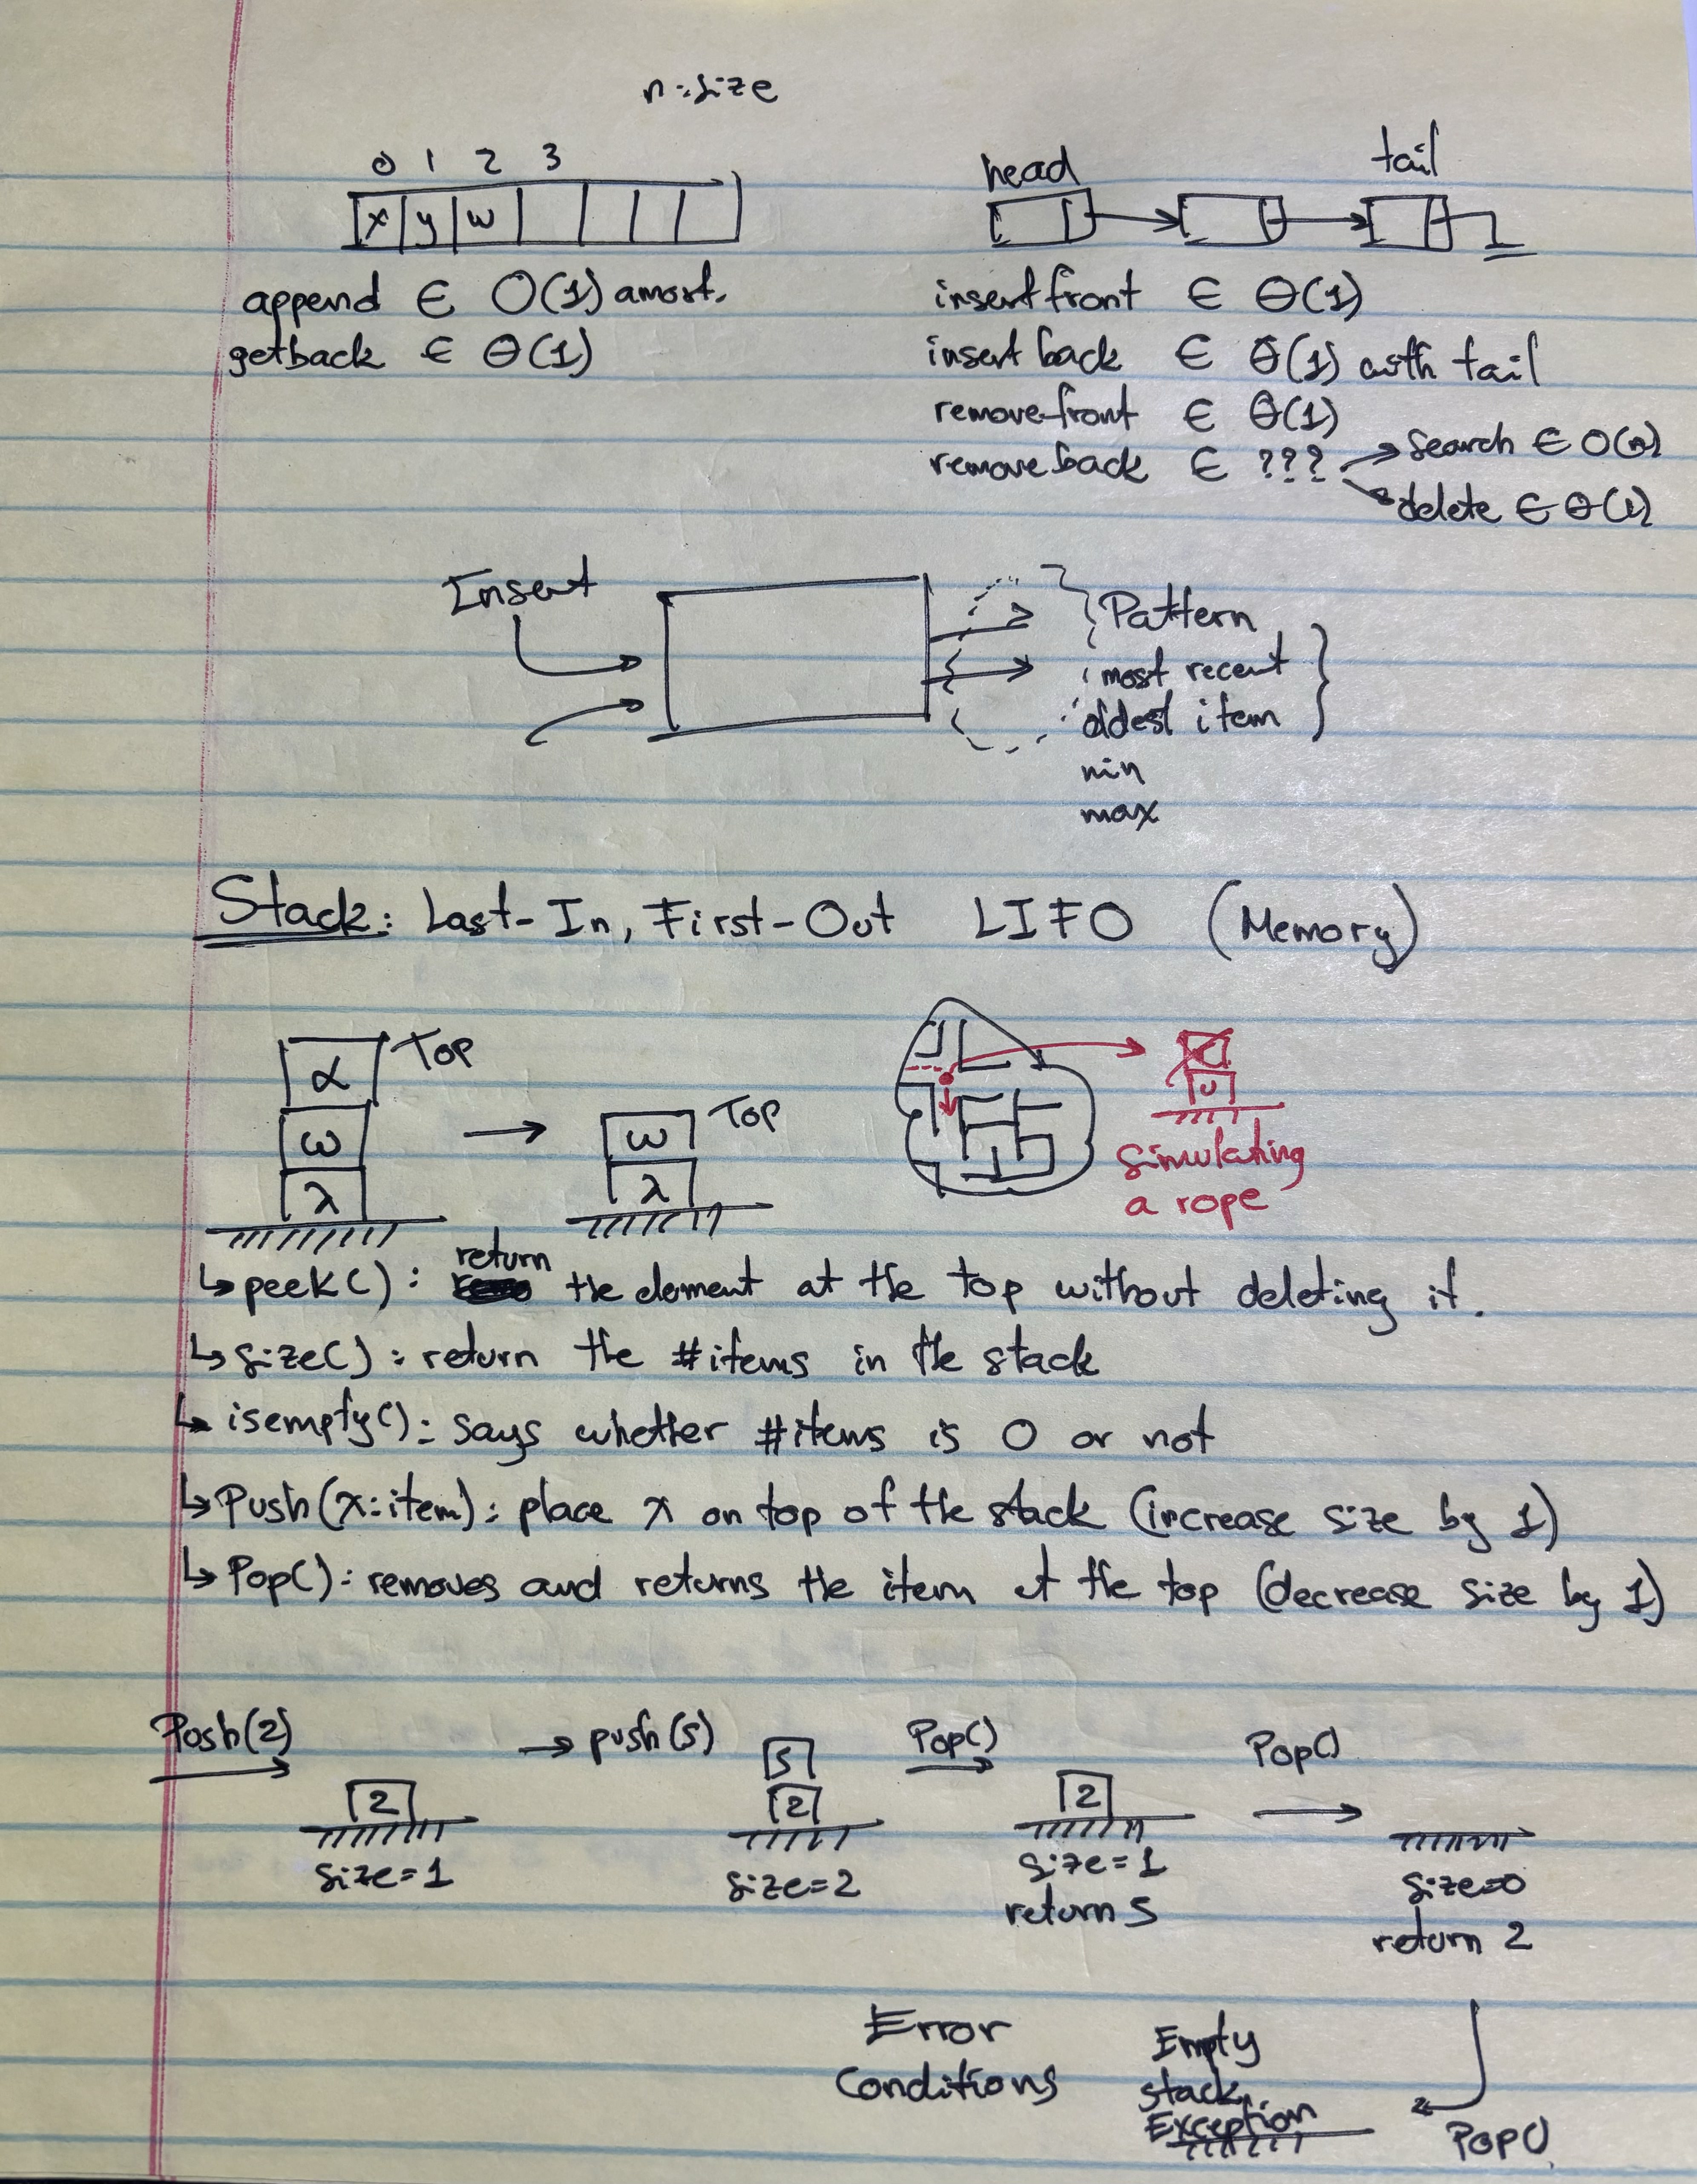 n:size
0 1 2 3
head
tail
x y w
append ∈ O(1) amort.
getback ∈ Θ(1)
insert front ∈ Θ(1)
insert back ∈ Θ(1) with tail
remove front ∈ Θ(1)
remove back ∈ ???
Search ∈ O(n)
delete ∈ Θ(1)
Insert
Pattern
most recent
oldest item
min
max
Stack: Last-In, First-Out LIFO (Memory)
α Top
ω
λ
ω Top
λ
simulating
a rope
↳ peek(): return the element at the top without deleting it.
↳ size(): return the #items in the stack
↳ isempty(): says whether #items is 0 or not
↳ Push(x:item): place x on top of the stack (increase size by 1)
↳ Pop(): removes and returns the item at the top (decrease size by 1)
Push(2)
2
size=1
→ push(5)
5
2
size=2
Pop()
2
size=1
return 5
Pop()
size=0
return 2
Error
Conditions
Empty
stack
Exception
Pop()